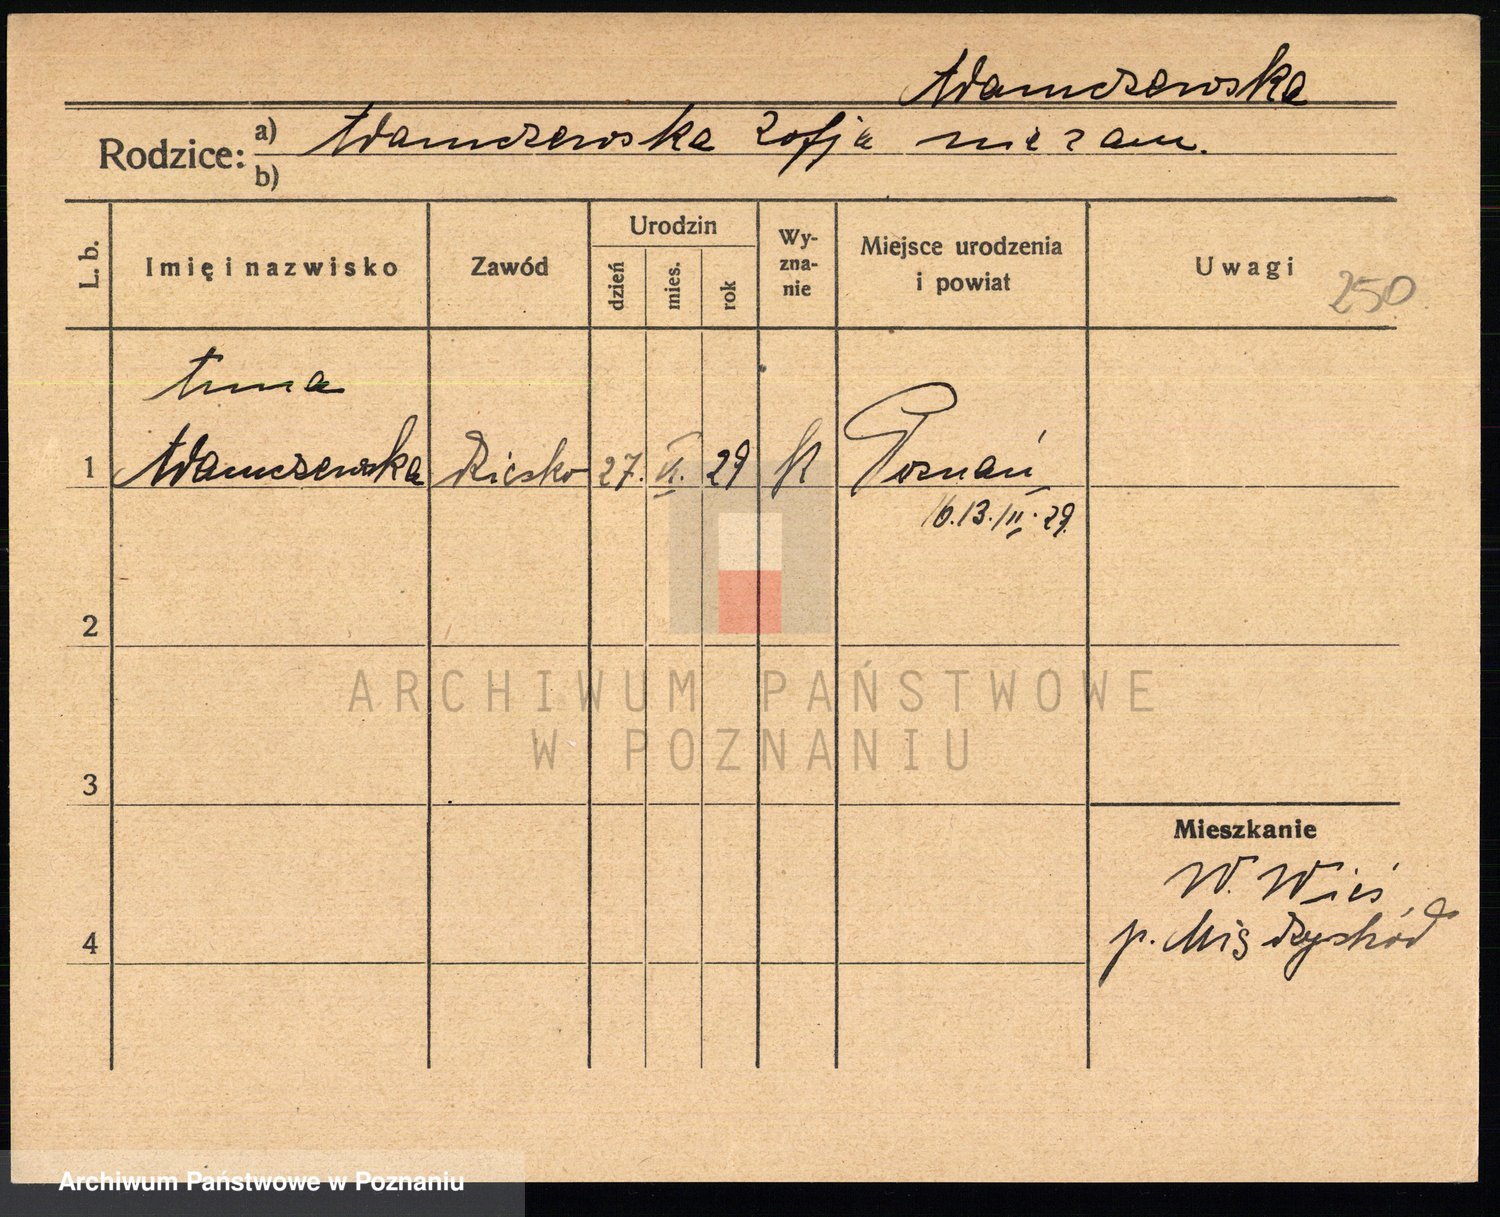 Adamczewska
Rodzice: a) Adamczewska Zofja niezam.
b)
L. b. Imię i nazwisko Zawód Urodzin dzień mies. rok Wy-zna-nie Miejsce urodzenia i powiat Uwagi 250
Anna
1 Adamczewska dziecko 27. II. 29 kt Poznań
13. III. 29.
2
3
4
Mieszkanie
W. Wieś
p. Międzychód
ARCHIWUM PAŃSTWOWE
W POZNANIU
Archiwum Państwowe w Poznaniu